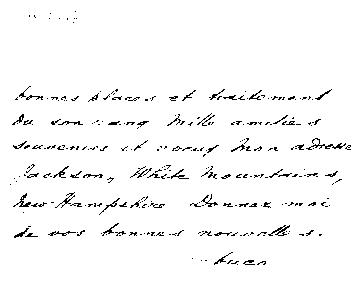 bonnes places et traitement
du son rang Mille amitiés
souvenirs et voeux Mon adresse
Jackson, White Mountains,
New-Hampshire Donnez moi
de vos bonnes nouvelles.